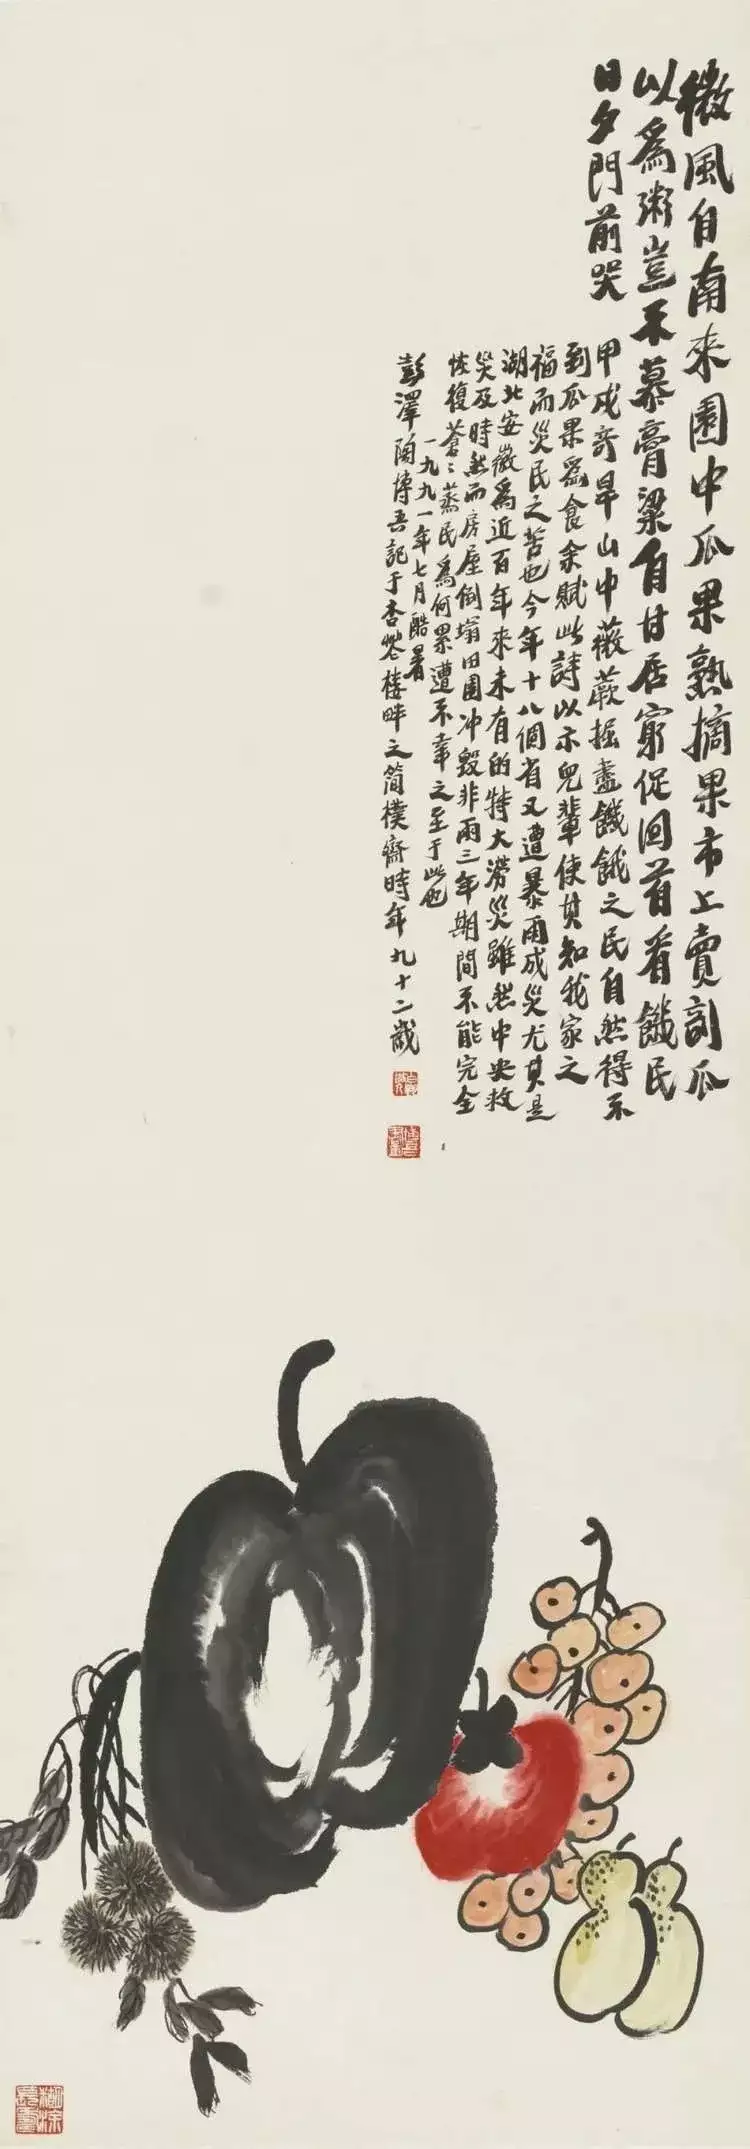 微風自南來園中瓜果熟摘果市上賣剖瓜
以為粥豈不慕膏粱自甘居窮促回首看饑民
日夕門前哭
甲戌奇旱山中薇蕨掘盡饑餓之民自然得不
到瓜果爲食余賦此詩以示兒輩使其知我家之
福而災民之苦也今年十八個省又遭暴雨成災尤其是
湖北安徽爲近百年來未有的特大澇災雖然中央救
災及時然而房屋倒塌田園冲毀非兩三年期間不能完全
恢復蒼〻蒸民爲何累遭不幸之至于此也
一九九一年七月酷暑
彭澤陶博吾記于杏花樓畔之简樸齋時年九十二歲